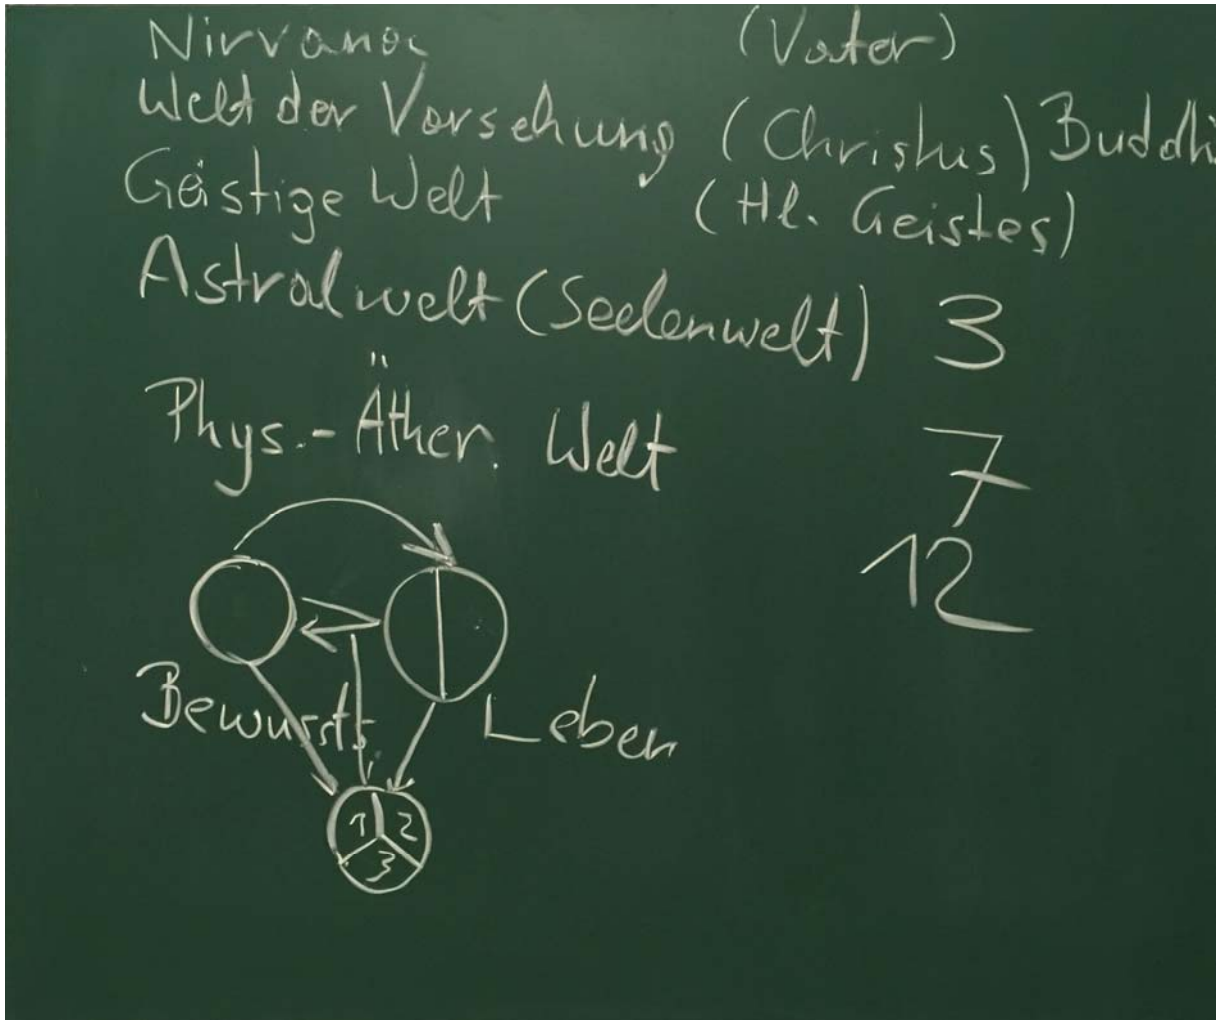 Nirvana (Vater)
Welt der Vorsehung (Christus) Buddhi
Geistige Welt (Hl. Geistes)
Astralwelt (Seelenwelt) 3
Phys.-Äther. Welt 7
12
Bewussts. Leben
1 2
3